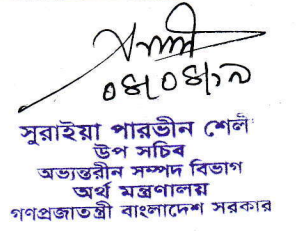 ০৪/০৪/১৯
সুরাইয়া পারভীন শেলী
উপ সচিব
অভ্যন্তরীন সম্পদ বিভাগ
অর্থ মন্ত্রণালয়
গণপ্রজাতন্ত্রী বাংলাদেশ সরকার